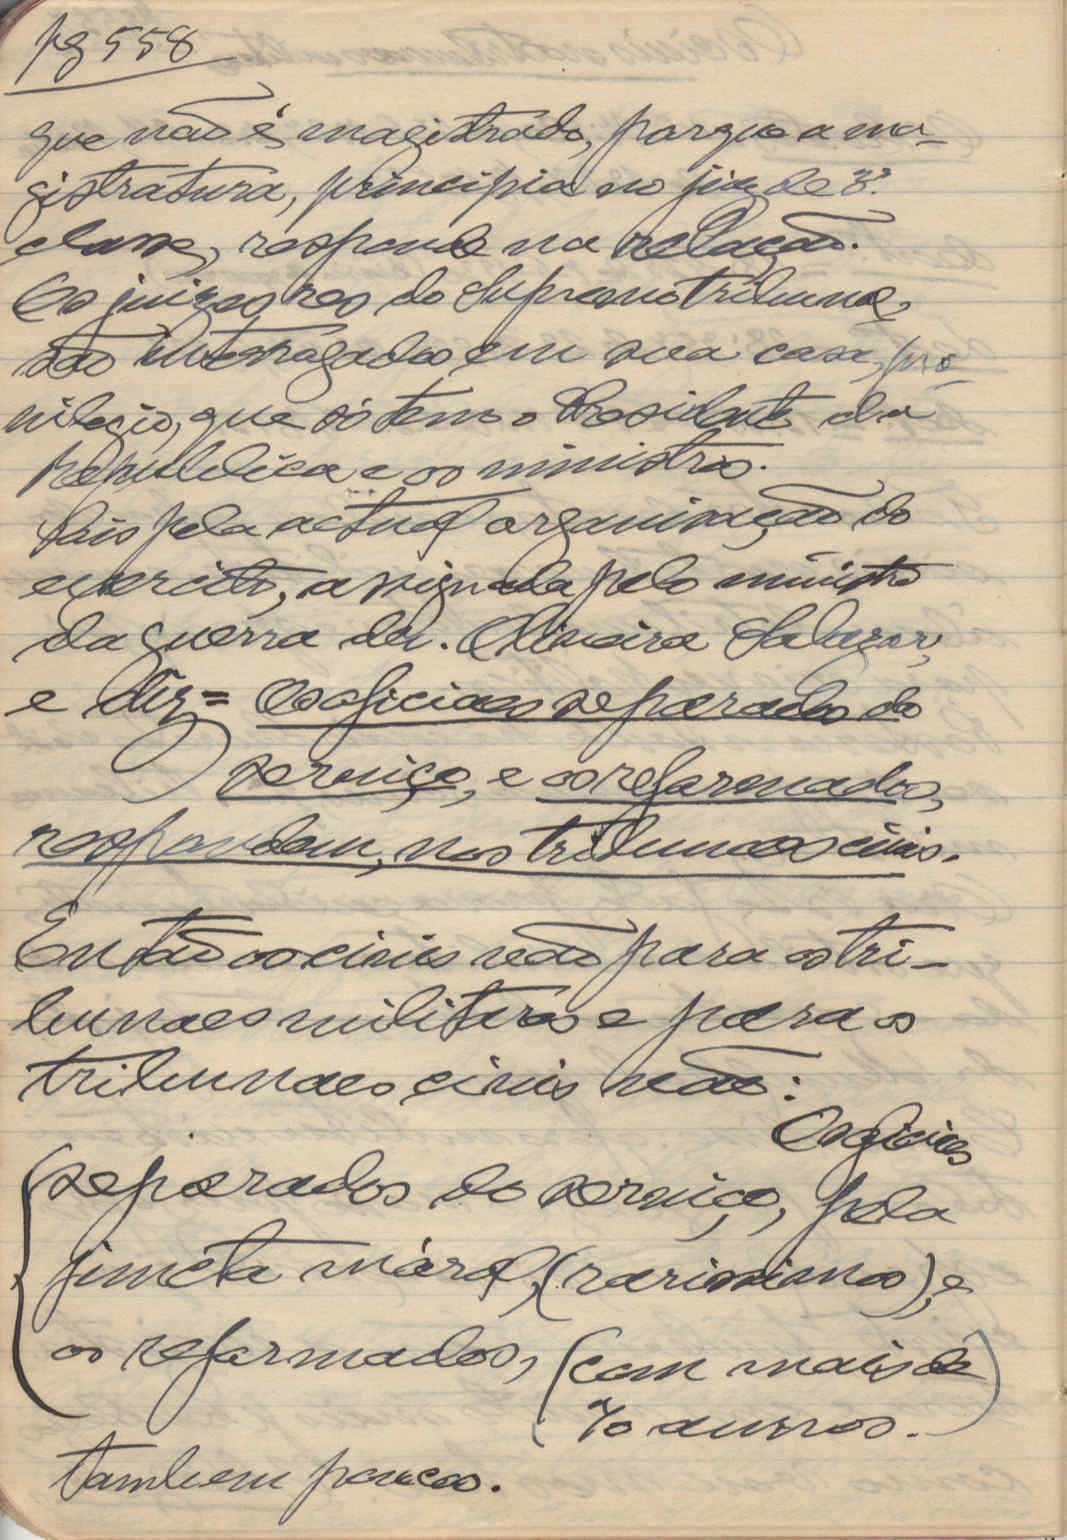 pg 558
que não é magistrado, porque a ma-
gistratura, principia no juiz de 3ª.
classe, responde na relação.
Os juizes res do Supremo tribunal,
são interrogados em sua casa, pre-
vilegio, que só tem o Presidente da
Republica e os ministros.
Pois pela actual organisação do
exercito, assignada pelo ministro
da guerra dr. Oliveira Salazar,
e diz = Os oficiaes separados do
serviço, e os reformados,
respondem, nos tribunaes civis.
Então os civis vão para os tri-
bunaes militares e para os
tribunaes civis vão:
Os oficiaes
separados do serviço, pela
juncta moral, (rarissimos), e
os reformados, (com mais de
70 annos.)
tambem poucos.